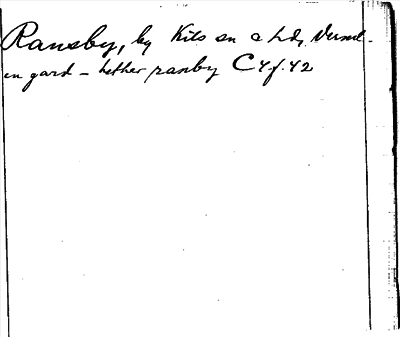 Ransby, by Kils sn a Ldg. Verml.
en gard - hether ransby C4f.42